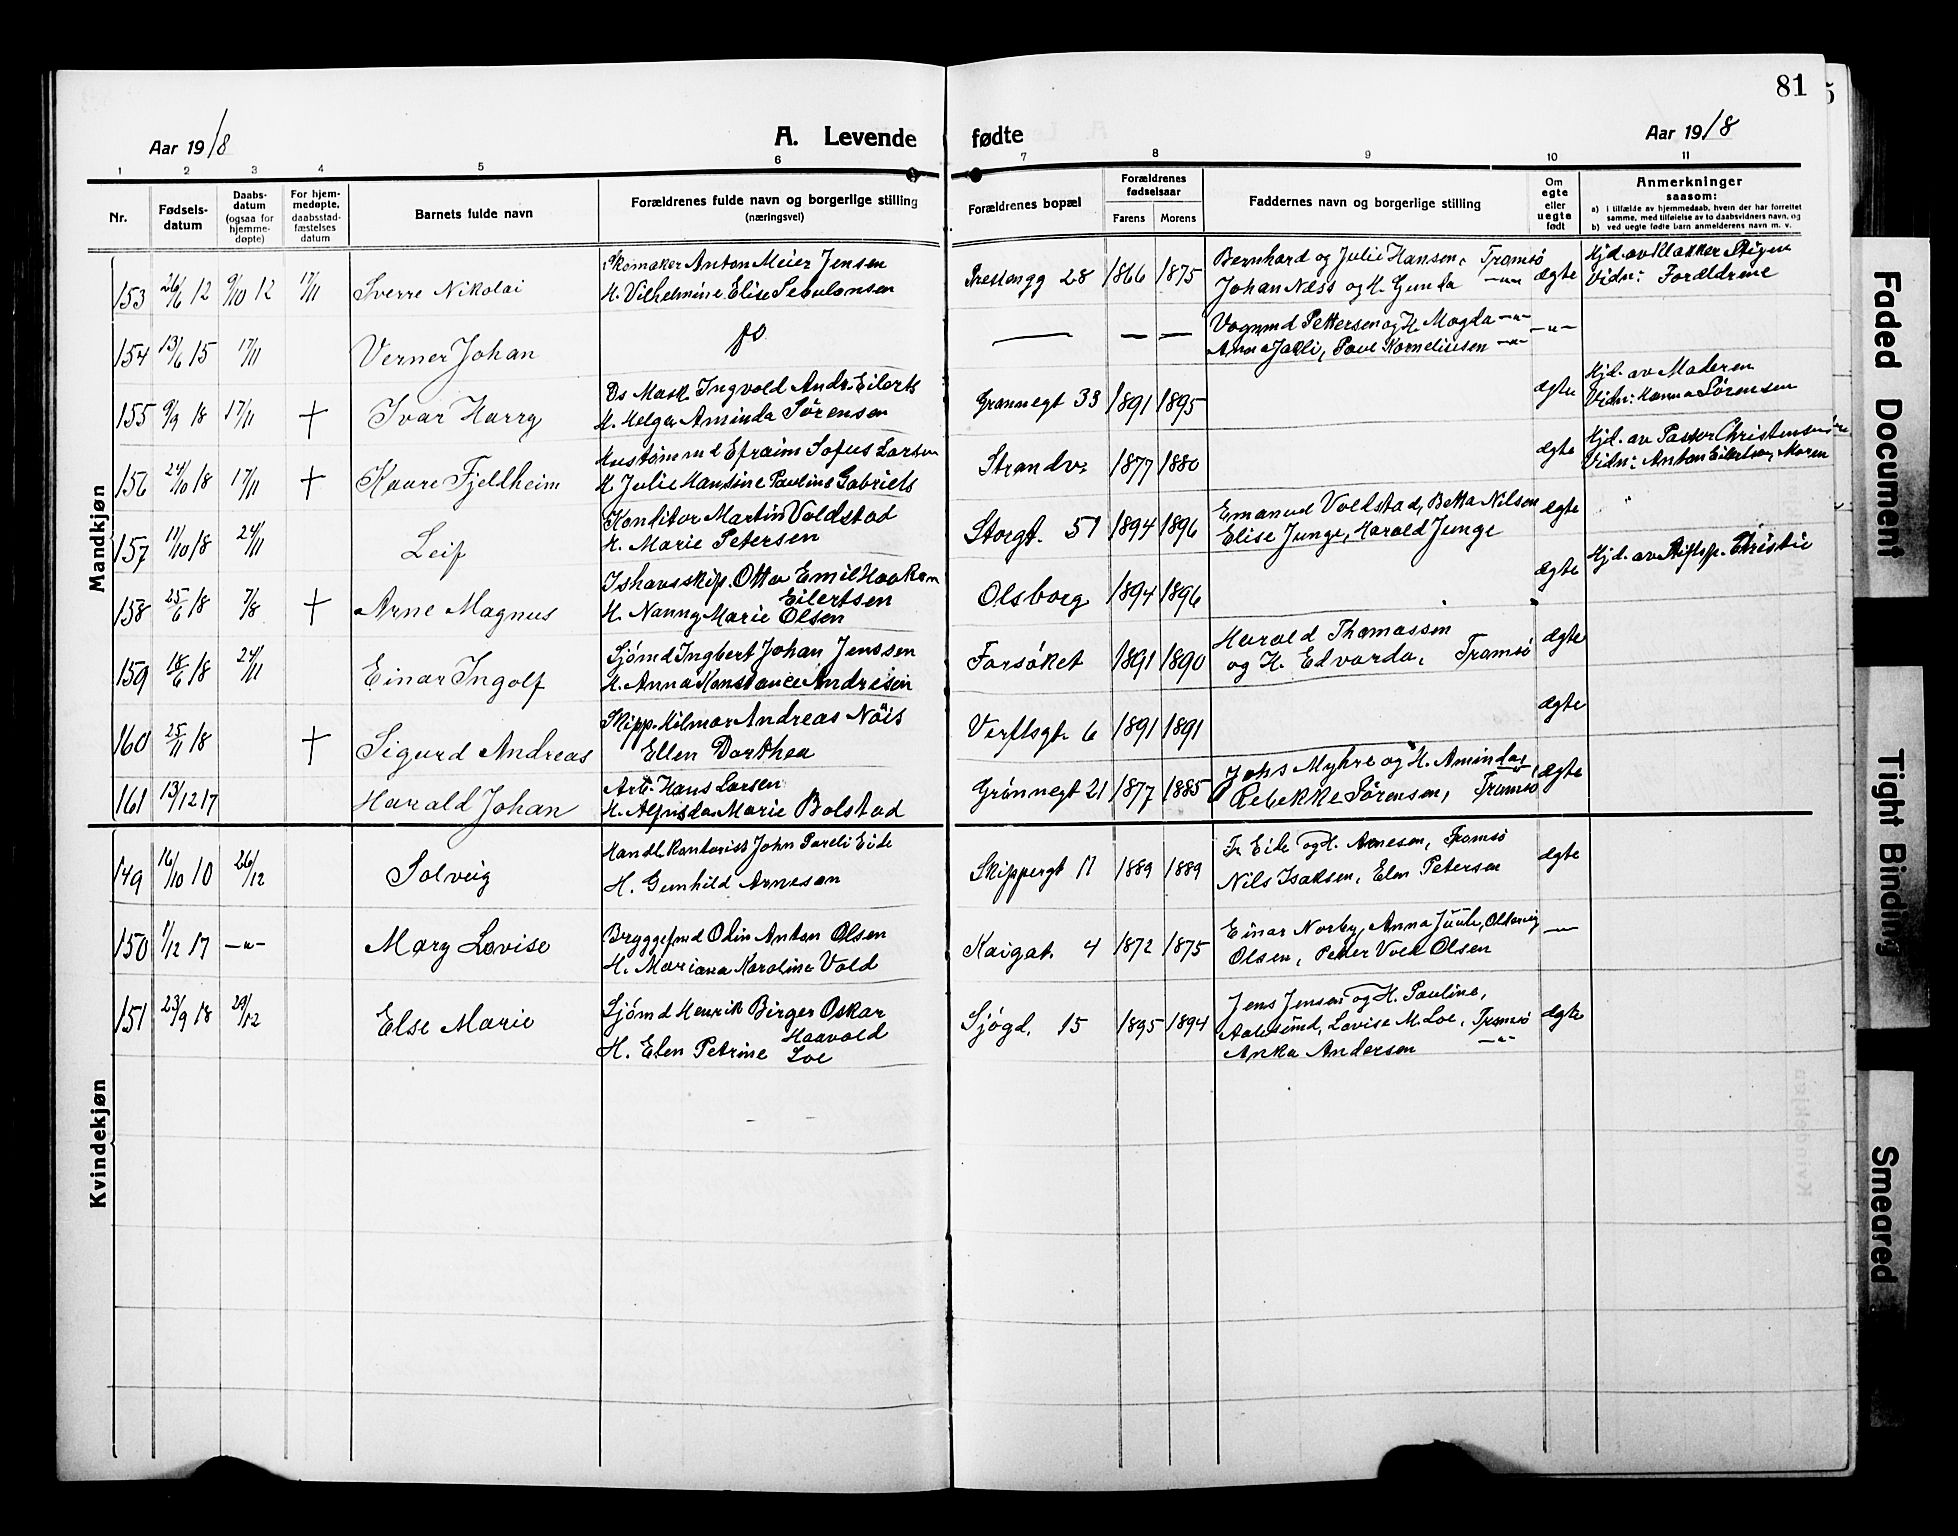 81
Aar 1918 A. Levende fødte Aar 1918
1 2 3 4 5 6 7 8 9 10 11
Nr.
Fødsels-
datum
Daabs-
datum
(ogsaa for
hjemme-
døpte)
For hjem-
medøpte,
daabsstad-
fæstelses
datum
Barnets fulde navn
Forældrenes fulde navn og borgerlige stilling
(næringsvei)
Forældrenes bopæl
Forældrenes
fødselsaar
Farens Morens
Faddernes navn og borgerlige stilling
Om
egte
eller
uegte
født
Anmerkninger
saasom:
a) i tilfælde av hjemmedaab, hvem der har forrettet
samme, med tilføielse av to daabsvidners navn, og
b) ved uegte fødte barn anmelderens navn m. v.
Mandkjøn
153 26/6 12 9/10 12 17/11 Sverre Nikolai
Skomaker Anton Meier Jensen
H. Vilhelmine Elise
28 1866 1875
Bernhard og Julie Hansen, Tromsø
Johan Næss og H. Gunda -"-
ægte
Hjd. av Klokker Stigen
Vidn: Forældrene
154 13/6 15 17/11 Verner Johan
do
— — —
Pettersen og H. Magda -"-
Anna Paul Korneliusen -"-
-"-
155 9/9 18 17/11 † Ivar Harry
Ds Mask Ingvold Andr. Eilerts
H. Helga Aminda Sørensen
Grønnegt 33 1891 1895
ægte
Hjd. av Moderen
Vidn: Hanna Sørensen
156 24/10 18 17/11 † Kaare Fjeldheim
Efraim Sofus Larsen
H Julie Hansine Pauline Gabriels
Strandv. 1877 1880
ægte
Hjd. av Pastor Christensen
Vidn: Anton Eilertsen, Maren
157 11/10 18 24/11 Leif
Konditor Martin Voldstad
H. Marie Petersen
Storgt. 51 1894 1896
Emanuel Voldstad, Betta Nilsen
Elise Junge, Harald Junge
ægte
158 25/6 18 7/8 † Arne Magnus
Ishavsskip. Otto Emil Haakon
Eilertsen
H. Nanny Marie Olsen
Olsborg 1894 1896
ægte
Hjd. av Stiftsp. Christie
159 18/6 18 24/11 Einar Ingolf
Sjømd Ingbert Johan Jenssen
H. Anna Konstance Andresen
Forsøket 1891 1890
Harald Thomassen
og H. Edvarda, Tromsø
ægte
160 25/11 18 † Sigurd Andreas
Skipp. Hilmar Andreas Nøis
Ellen Dorthea
Verftsgt. 6 1891 1891
ægte
161 13/12 17 Harald Johan
Arb. Hans Larsen
H. Alfrida Marie Bolstad
Grønnegt 21 1877 1885
Johs Myhre og H. Aminda,
Rebekke Sørensen, Tromsø
ægte
Kvindekjøn
149 16/10 10 26/12 Solveig
Handl. Kontorist John Eide
H. Gunhild Arnesen
Skippergt 11 1889 1889
Fr. Eide og H. Arnesen, Tromsø
Nils Isaksen, Elen Petersen
ægte
150 1/12 17 -"- Mary Lovise
Bryggefmd Odin Anton Olsen
H. Mariana Karoline Vold
Kaigat. 4 1872 1875
Einar Norby, Anna Juul,
Olsen, Peder Olsen
-"-
151 23/9 18 29/12 Else Marie
Sjømd Henrik Birger Oskar
Haavold
H. Elen Petrine Loe
Sjøgd. 15 1895 1894
Jens Jensen og H. Pauline,
Aalesund, Lovise M. Loe, Tromsø
Anka Andersen -"-
ægte
Faded Document
Tight Binding
Smeared